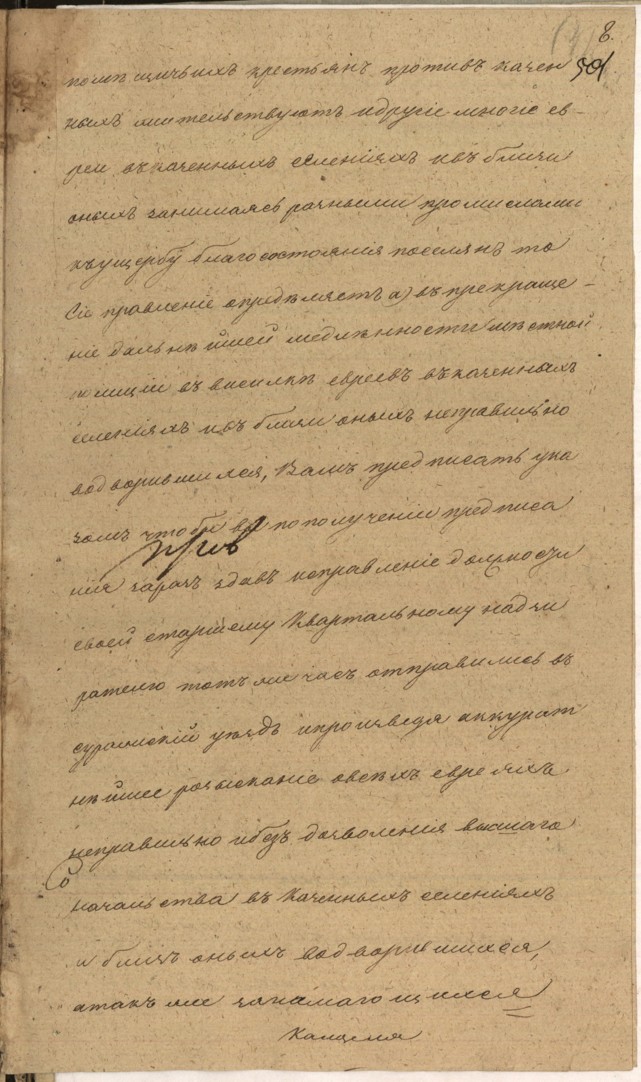 8.
50
помѣщичьихъ крестьянъ противъ казен
ныхъ жительствуютъ идругіе многіе ев-
реи въ казенныхъ селеніяхъ ивъ близи
оныхъ занимаясь разными промислами
къ ущербу благосостоянія поселянъ то
Сіе правленіе опредѣляетъ а) въ прекраще-
ніе дальнѣйшей медлѣнности мѣстной
полиціи въ висилкѣ евреевъ въ казенныхъ
селеніяхъ ивъ близи оныхъ неправильно
водворившихся, Вамъ предписать ука
зомъ чтобы вы пополученіи предписа
нія заразъ здавъ исправленіе должности
своей старшему Квартальному надзи
рателю тотъ же часъ отправились въ
суражскій уѣздъ ипроизведя аккурат
нѣйшее розысканіе овсѣхъ евреяхъ
неправильно ибезъ дозволенія высшаго
начальства въ казенныхъ селеніяхъ
и близъ оныхъ водворившихся,
атакъ же занимающихся